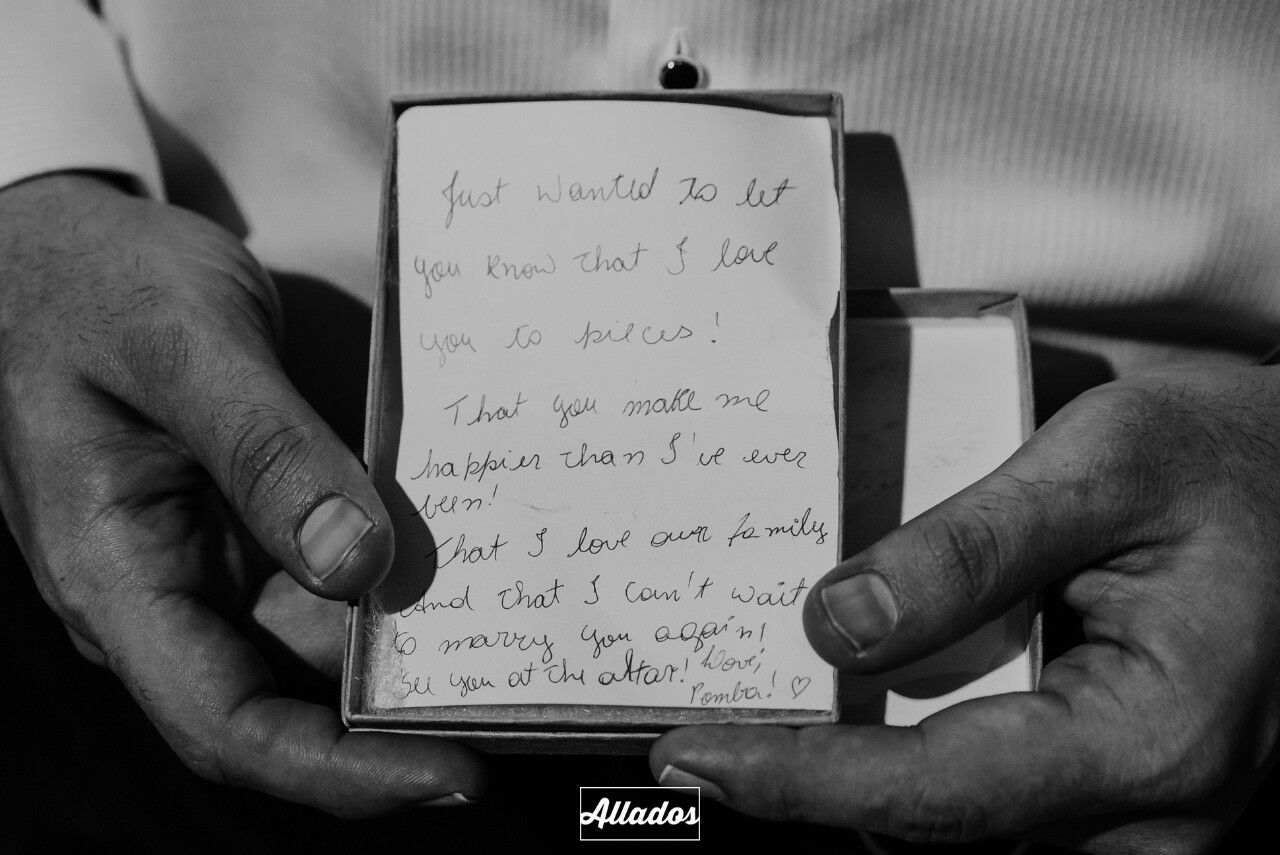 Just wanted to let
you know that I love
you to pieces!
That you make me
happier than I've ever
been!
That I love our family
And that I can't wait
to marry you again!
See you at the altar! Love,
Pomba! ♡
Allados